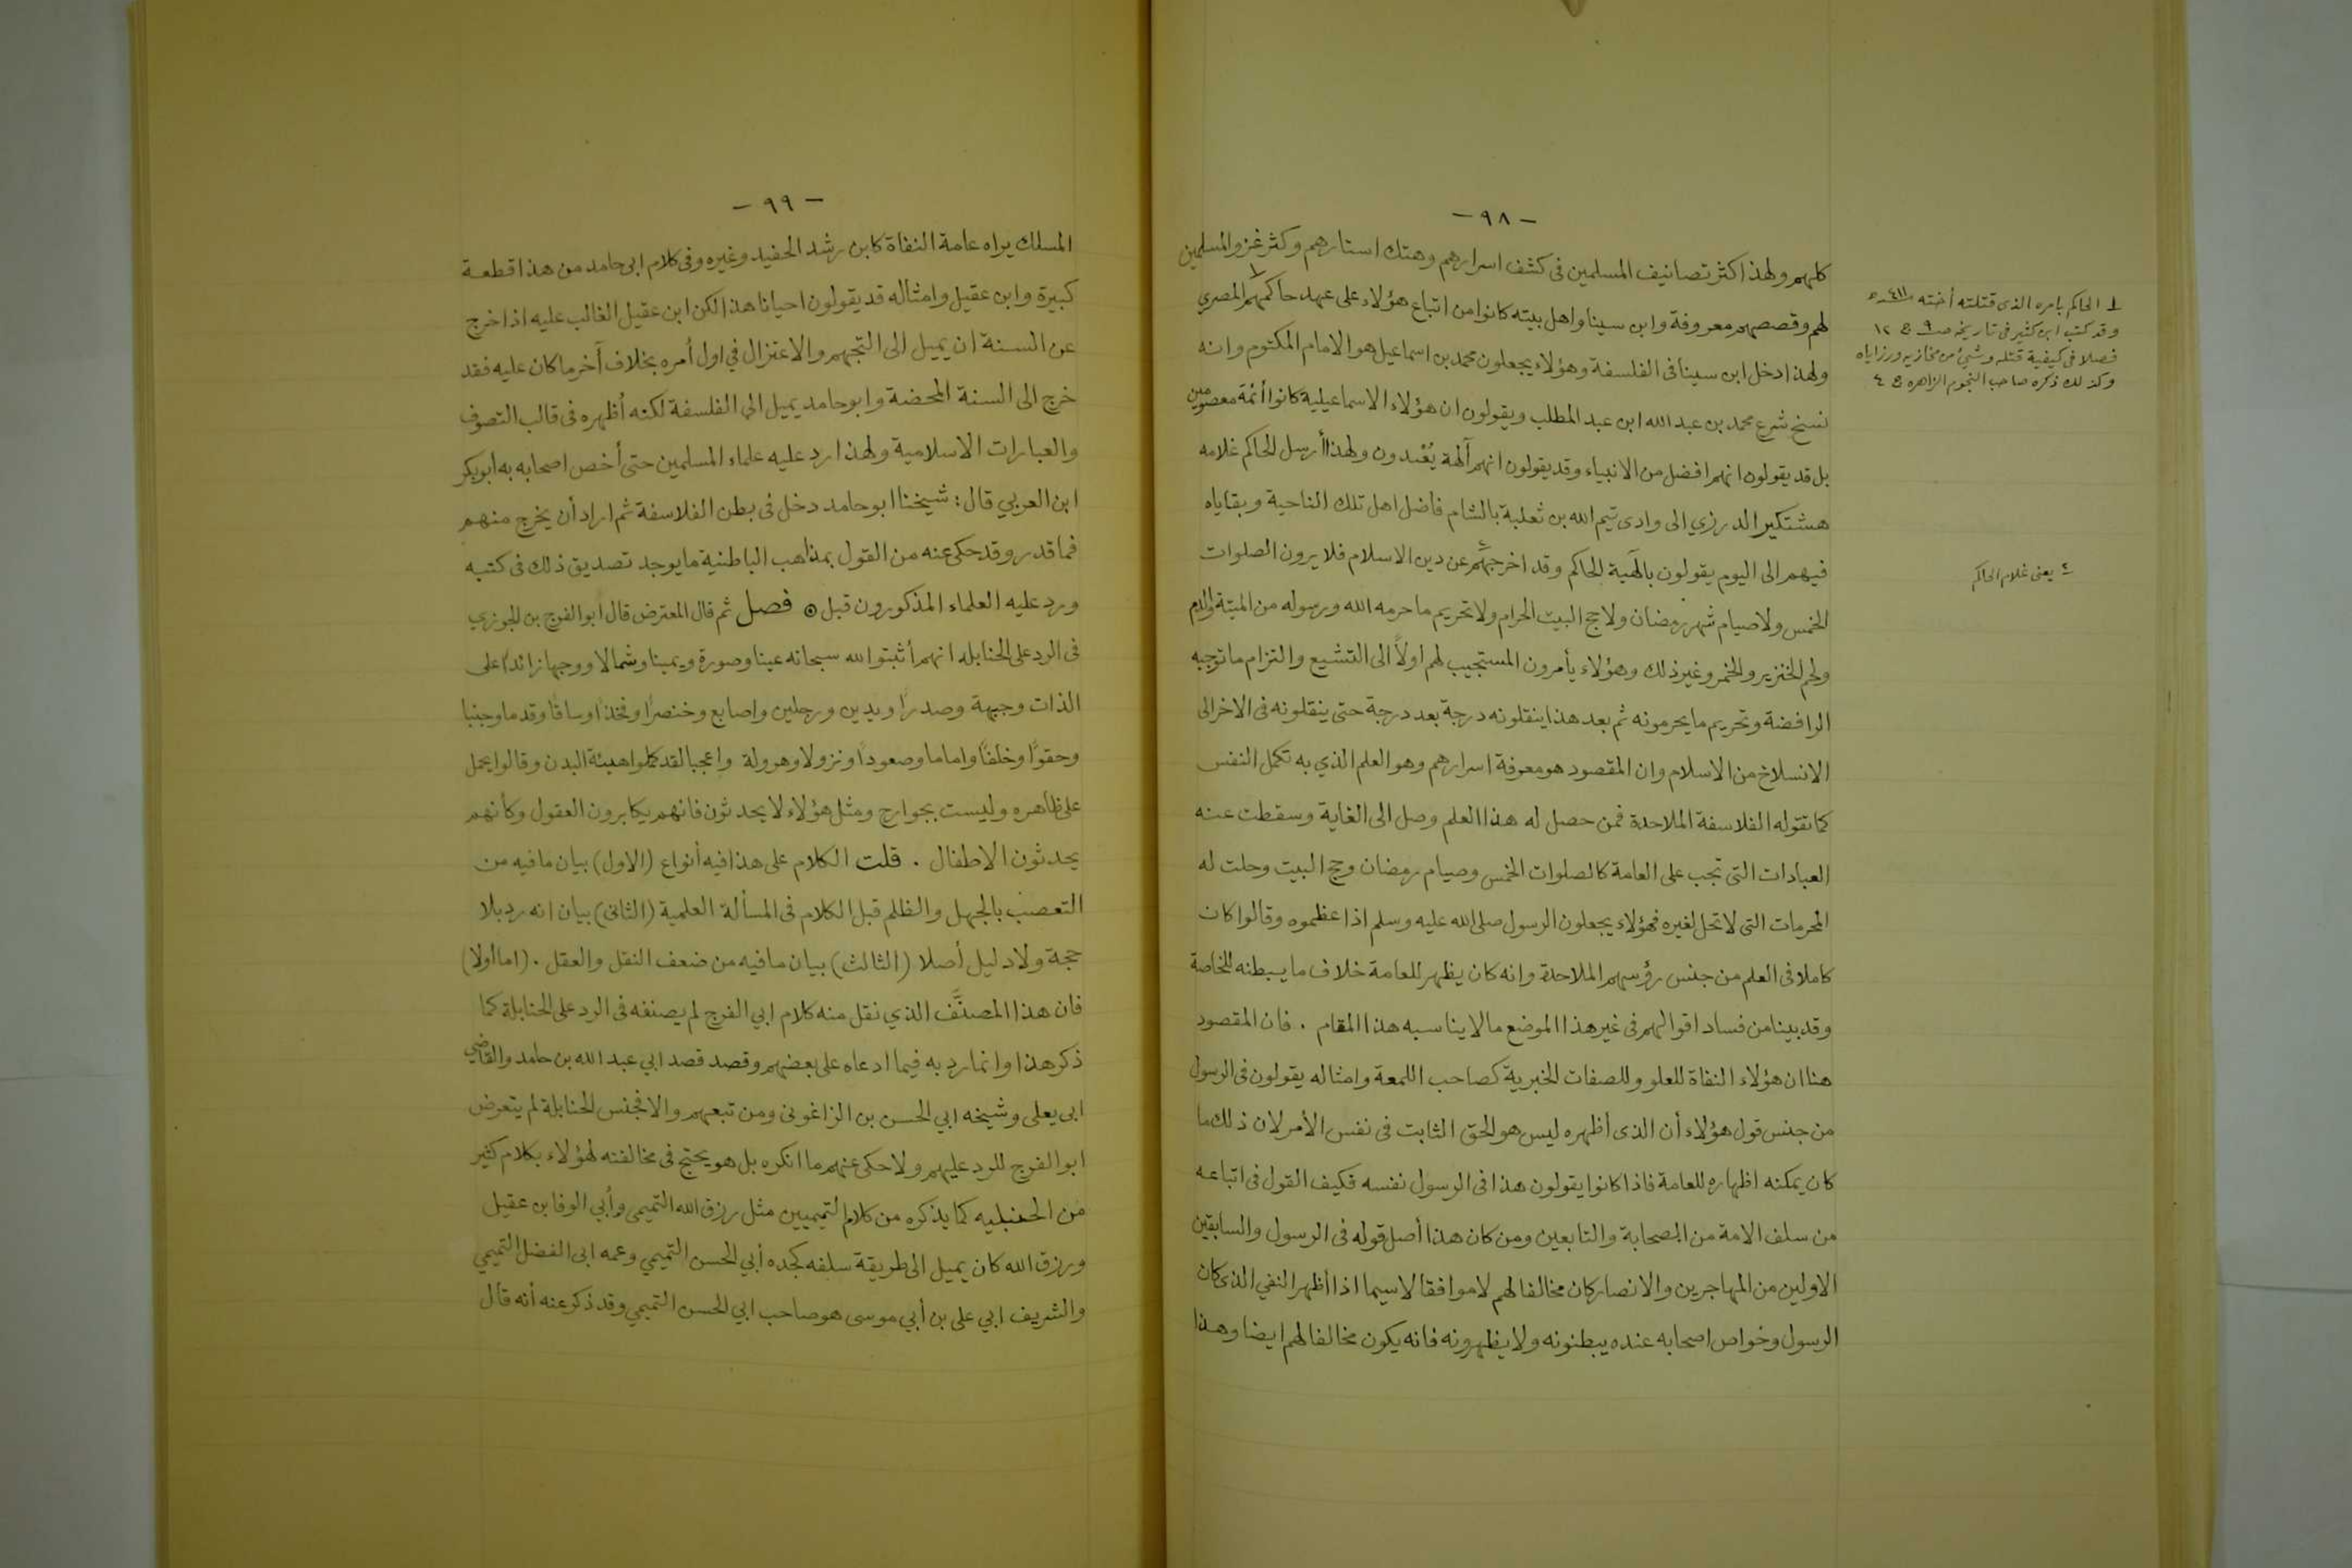 - ٩٨ -
كلهم ولهذا كثر تصانيف المسلمين فى كشف اسرارهم وهتك استارهم وكثر غزو المسلمين
لهم وقصصهم معروفة وابن سينا واهل بيته كانوا من اتباع هؤلاء على عهد حاكمهم ١ المصري
ولهذا دخل ابن سينا فى الفلسفة وهؤلاء يجعلون محمد بن اسماعيل هو الامام المكتوم وانه
نسخ شرع محمد بن عبد الله ابن عبد المطلب ويقولون ان هؤلاء الاسماعيلية كانوا أئمة معصومين
بل قد يقولون انهم افضل من الانبياء وقد يقولون انهم آلهة يُعْبدون ولهذا أرسل الحاكم غلامه
هشتكير الدرزي الى وادى تيم الله بن ثعلبة بالشام فاضل اهل تلك الناحية وبقاياه
فيهم الى اليوم يقولون بالهية الحاكم وقد اخرجهم ٢ عن دين الاسلام فلا يرون الصلوات
الخمس ولا صيام شهر رمضان ولا حج البيت الحرام ولا تحريم ما حرمه الله ورسوله من الميتة والدم
ولحم الخنزير والخمر وغير ذلك وهؤلاء يأمرون المستجيب لهم أولاً الى التشيع والتزام ما توجبه
الرافضة وتحريم ما يحرمونه ثم بعد هذا ينقلونه درجة بعد درجة حتى ينقلونه فى الاخر الى
الانسلاخ من الاسلام وان المقصود هو معرفة اسرارهم وهو العلم الذي به تكمل النفس
كما تقوله الفلاسفة الملاحدة فمن حصل له هذا العلم وصل الى الغاية وسقطت عنه
العبادات التى تجب على العامة كالصلوات الخمس وصيام رمضان وحج البيت وحلت له
المحرمات التى لا تحل لغيره فهؤلاء يجعلون الرسول صلى الله عليه وسلم اذا عظموه وقالوا كان
كاملا فى العلم من جنس رؤسهم الملاحدة وانه كان يظهر للعامة خلاف ما يبطنه للخاصة
وقد بينا من فساد اقوالهم فى غير هذا الموضع ما لا يناسبه هذا المقام . فان المقصود
هنا ان هؤلاء النفاة للعلو وللصفات الخبرية كصاحب اللمعة وامثاله يقولون فى الرسول
من جنس قول هؤلاء أن الذى أظهره ليس هو الحق الثابت فى نفس الأمر لان ذلك ما
كان يمكنه اظهاره للعامة فاذا كانوا يقولون هذا فى الرسول نفسه فكيف القول فى اتباعه
من سلف الامة من الصحابة والتابعين ومن كان هذا أصل قوله فى الرسول والسابقين
الاولين من المهاجرين والانصار كان مخالفا لهم لا موافقا لا سيما اذا أظهر النفي الذى كان
الرسول وخواص اصحابه عنده يبطنونه ولا يظهرونه فانه يكون مخالفا لهم ايضا وهذا
١ الحاكم بامره الذى قتلته أخته ٤١١
وقد كتب ابن كثير فى تاريخه ص ٩ ج ١٢
فصلا فى كيفية قتله وشئ من مخازيه ورزاياه
وكذلك ذكره صاحب النجوم الزاهره ج ٤
٢ يعنى غلام الحاكم
- ٩٩ -
المسلك يراه عامة النفاة كابن رشد الحفيد وغيره وفى كلام ابى حامد من هذا قطعة
كبيرة وابن عقيل وامثاله قد يقولون احيانا هذا لكن ابن عقيل الغالب عليه اذا خرج
عن السنة ان يميل الى التجهم والاعتزال في اول أمره بخلاف آخر ما كان عليه فقد
خرج الى السنة المحضة وابو حامد يميل الى الفلسفة لكنه أظهره فى قالب التصوف
والعبارات الاسلامية ولهذا رد عليه علماء المسلمين حتى أخص اصحابه به ابو بكر
ابن العربي قال : شيخنا ابو حامد دخل فى بطن الفلاسفة ثم اراد أن يخرج منهم
فما قدر وقد حكى عنه من القول بمذاهب الباطنية ما يوجد تصديق ذلك فى كتبه
ورد عليه العلماء المذكورون قبل ⊙ فصل ثم قال المعترض قال ابو الفرج بن الجوزي
فى الرد على الحنابله انهم أثبتوا لله سبحانه عينا وصورة ويمينا وشمالا ووجها زائدا على
الذات وجبهة وصدرًا ويدين ورجلين واصابع وخنصرًا وفخذًا وساقًا وقدما وجنبا
وحقوًا وخلفًا واماما وصعودًا ونزولا وهرولة واعجبا لقد كملوا هيئة البدن وقالوا يحمل
على ظاهره وليست بجوارح ومثل هؤلاء لا يحدثون فانهم يكابرون العقول وكأنهم
يحدثون الاطفال . قلت الكلام على هذا فيه أنواع (الاول) بيان ما فيه من
التعصب بالجهل والظلم قبل الكلام فى المسألة العلمية (الثانى) بيان انه رد بلا
حجة ولا دليل أصلا (الثالث) بيان ما فيه من ضعف النقل والعقل . (اما أولا)
فان هذا المصنَّف الذي نقل منه كلام ابي الفرج لم يصنفه فى الرد على الحنابلة كما
ذكر هذا وانما رد به فيما ادعاه على بعضهم وقصد قصد ابي عبد الله بن حامد والقاضي
ابى يعلى وشيخه ابي الحسن بن الزاغونى ومن تبعهم والا فجنس الحنابلة لم يتعرض
ابو الفرج للرد عليهم ولا حكى عنهم ما انكره بل هو يحتج فى مخالفته لهؤلاء بكلام كثير
من الحنبليه كما يذكره من كلام التميميين مثل رزق الله التميمى وأبي الوفا بن عقيل
ورزق الله كان يميل الى طريقة سلفه كجده أبي الحسن التميمي وعمه ابى الفضل التميمي
والشريف ابي على بن أبي موسى هو صاحب ابي الحسن التميمي وقد ذكر عنه أنه قال